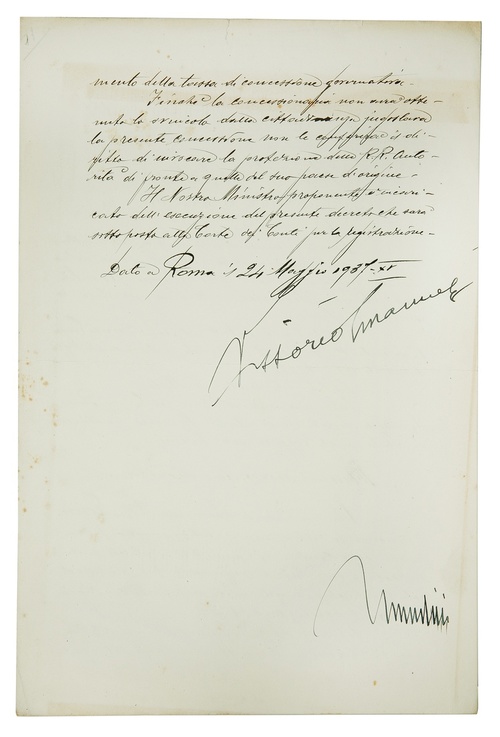 mento della tassa di concessione governativa.
Finchè la concessionaria non avrà otte-
nuto lo svincolo dalla cittadinanza jugoslava
la presente concessione non le conferirà il di-
ritto di invocare la protezione delle RR. Auto-
rità di fronte a quelle del suo paese d'origine.
Il Nostro Ministro proponente è incari-
cato dell'esecuzione del presente decreto che sarà
sottoposto alla Corte dei Conti per la registrazione.
Dato a Roma il 24 Maggio 1937-XV
Vittorio Emanuele